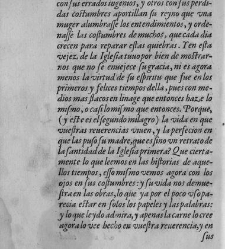 con sus errados ingenios, y otros con sus perdi-
das costumbres apostillan su reyno que vna
muger alumbrasse los entendimientos, y orde-
nasse las costumbres de muchos, que cada dia
crecen para reparar estas quiebras. Y en esta
vejez, de la Iglesia tuuo por bien de mostrar-
nos que no se enuejece su gracia, ni es agora
menos la virtud de su espiritu que fue en los
primeros y felices tiempos della, pues con me-
dios mas flacos en linage que entonces haze lo
mismo, o casi lo mismo que entonces. Porque,
(y este es el segundo milagro) la vida en que
vuestras reuerencias viuen, y la perfecion en
que las puso su madre, que es sino vn retrato de
la santidad de la Iglesia primera? Que cierta-
mente lo que leemos en las historias de aque-
llos tiempos, esso mismo vemos agora con los
ojos en sus costumbres: y su vida nos demue-
stra en las obras, lo que ya por el poco vso pa-
recia estar en solos los papeles y las palabras:
y lo que leydo admira, y apenas la carne lo cree
agora lo vee hecho en vuestra reuerencia, y en
sus